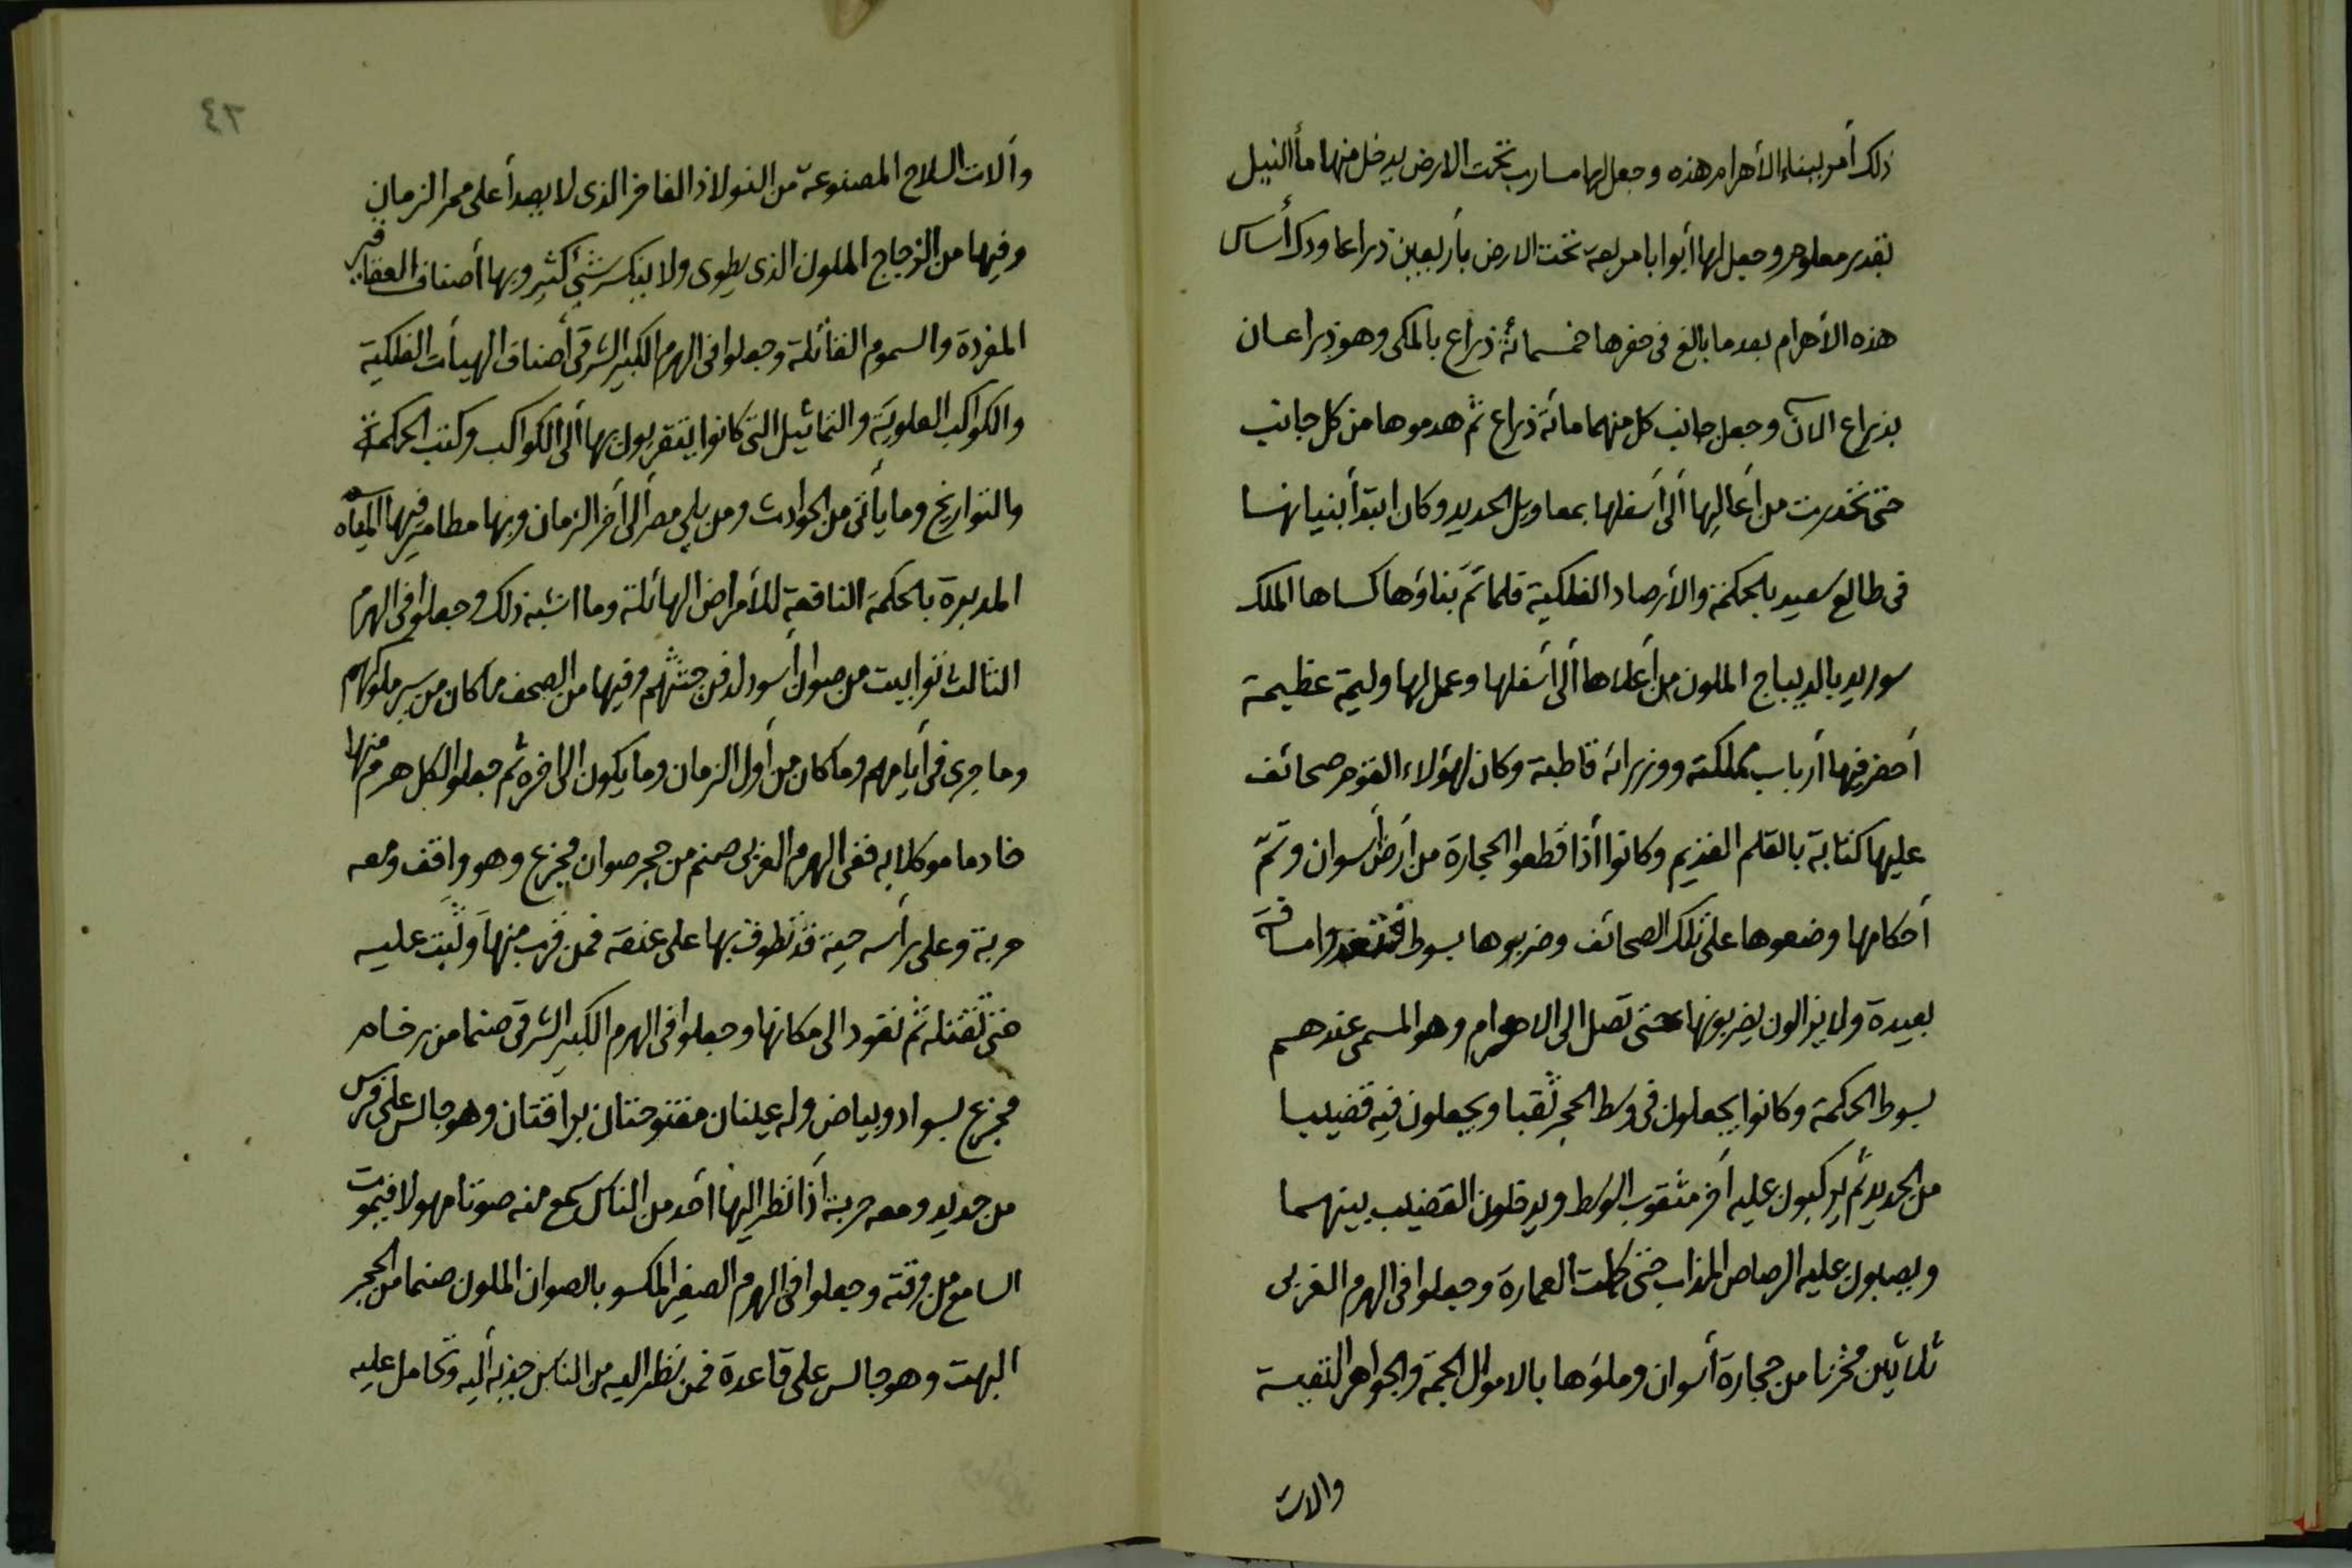 ذلك أمر ببناء الأهرام هذه وجعل لها مسارب تحت الارض يدخل منها ماء النيل
بقدر معلوم وجعل لها أبوابا مربعة تحت الارض بأربعين ذراعا ودك أساس
هذه الأهرام بعد ما بالغ فى حفرها خمسمائة ذراع بالملكى وهو ذراعان
بذراع الآن وجعل جانب كل منهما مائة ذراع ثم هدموها من كل جانب
حتى تخدرت من أعاليها ألى أسفلها بمعاويل الحديد وكان ابتدأ بنيانها
فى طالع سعيد بالحكمة والأرصاد الفلكية فلما تمّ بناؤها كساها الملك
سوريد بالديباج الملون من أعلاها ألى أسفلها وعمل لها وليمة عظيمة
أحضر فيها أرباب مملكته ووزرائه قاطبة وكان لهؤلاء القوم صحائف
عليها كتابة بالقلم القديم وكانوا أذا قطعوا الحجارة من أرض أسوان وتمّ
أحكامها وضعوها على تلك الصحائف وضربوها بسوط فتغدوا مسافة
بعيدة ولا يزالون يضربونها حتى تصل الى الاهرام وهو المسمى عندهم
بسوط الحكمة وكانوا يجعلون فى وسط الحجر ثقبا ويجعلون فيه قضيبا
من الحديد ثم يركبون عليه أخر مثقوب الوسط ويدخلون القضيب بينهما
ويصبون عليه الرصاص المذاب حتى كملت العمارة وجعلوا فى الهرم الغربى
ثلاثين مخزنا من حجارة أسوان وملؤها بالاموال الجمة والجواهر النفيسة
والات
٤٣
وألات السلاح المصنوعة من الفولاذ الفاخر الذى لا يصدأ على ممر الزمان
وفيها من الزجاج الملون الذى يطوى ولا ينكسر شئ كثير وبها أصناف العقاقير
المفردة والسموم القاتلة وجعلوا فى الهرم الكبير الشرقى أصناف الهيأت الفلكية
والكواكب العلوية والتماثيل التى كانوا يتقربون بها ألى الكواكب وكتب الحكمة
والتواريخ وما يأتى من الحوادث ومن يلى مصر ألى أخر الزمان وبها مطامير فيها المياه
المدبرة بالحكمة النافعة للأمراض الهائلة وما اشبه ذلك وجعلوا فى الهرم
الثالث توابيت من صوان أسود لدفن جثثهم وفيها من الصحف ما كان من سير ملوكهم
وما جرى فى أيامهم وما كان من أول الزمان وما يكون الى اخره ثم جعلوا لكل هرم منها
خادما موكلا به ففى الهرم الغربى صنم من حجر صوان مجزع وهو واقف ومعه
حربة وعلى رأسه حية قد تطوقت بها على عنقه فمن قرب منها وثبت عليه
حتى تقتله ثم تعود الى مكانها وجعلوا فى الهرم الكبير الشرقى صنما من رخام
مجزع بسواد وبياض وله عينان مفتوحتان براقتان وهو جالس على كرسى
من حديد ومعه حربة أذا نظر اليها أحد من الناس سمع منه صوتا مهولا فيموت
السامع من وقته وجعلوا فى الهرم الصغير المكسو بالصوان الملون صنما من الحجر
البهت وهو جالس على قاعدة فمن نظر اليه من الناس جذبه أليه وتحامل عليه